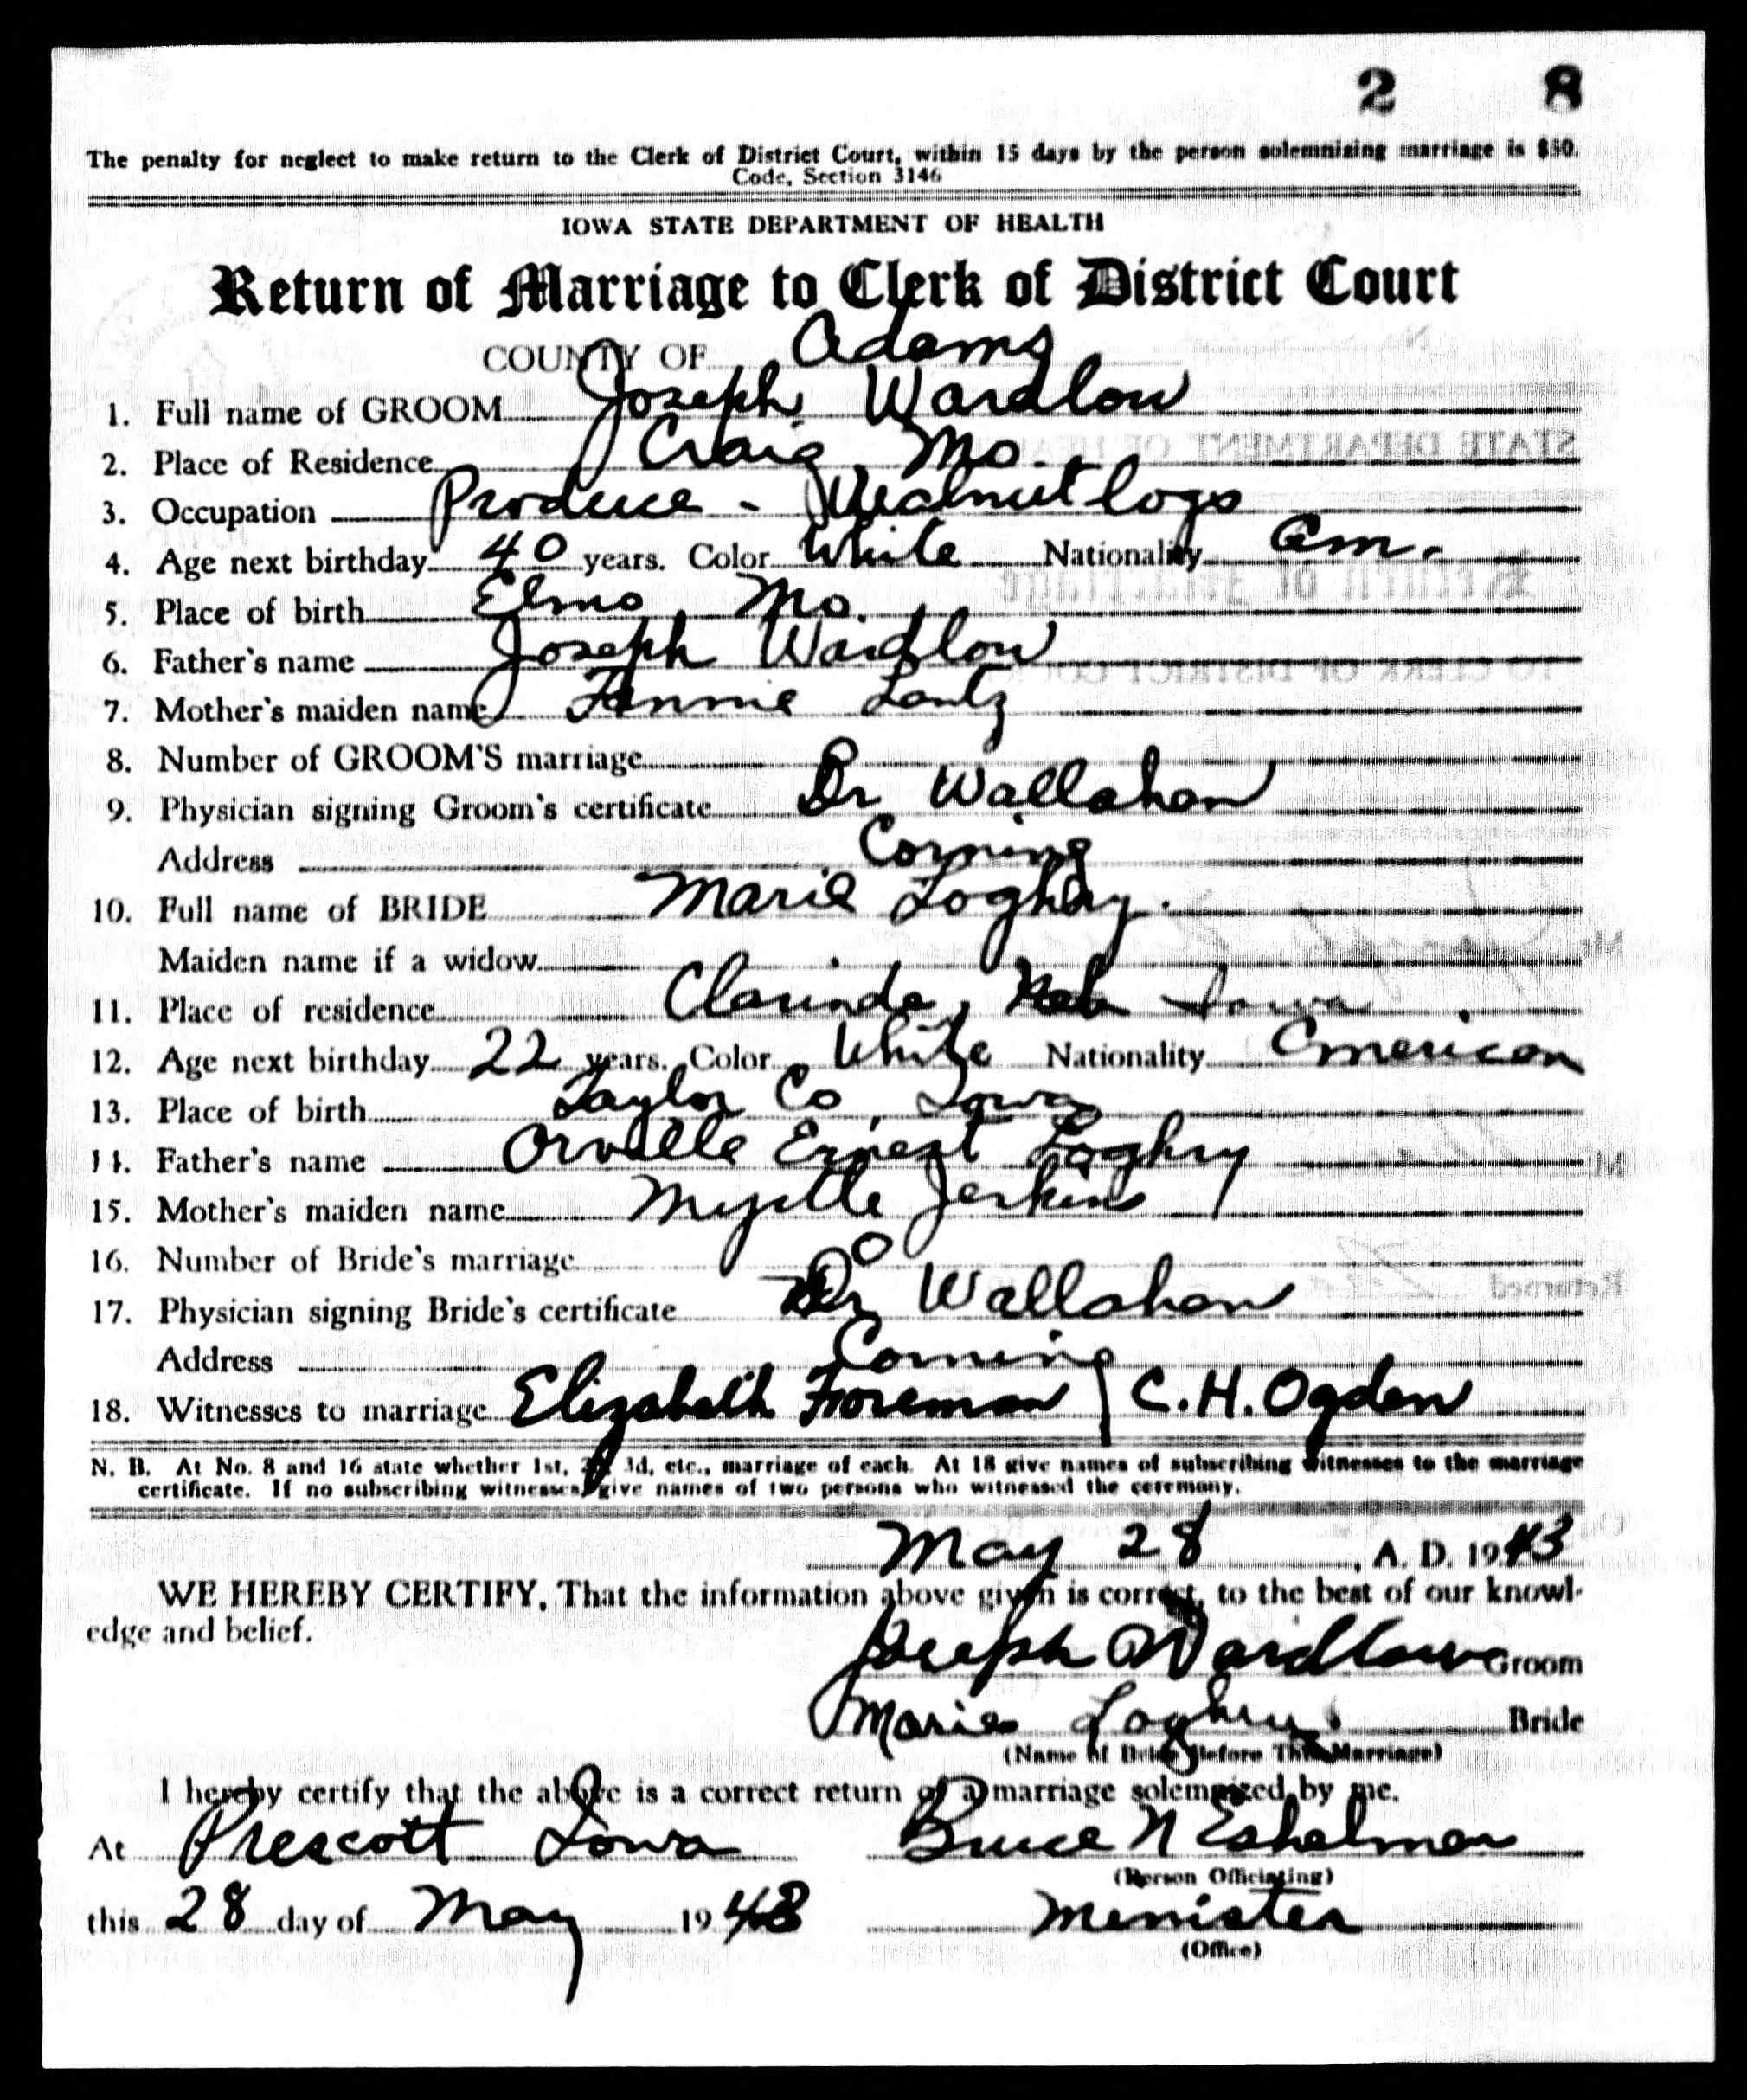 2 8
The penalty for neglect to make return to the Clerk of District Court, within 15 days by the person solemnizing marriage is $50.
Code, Section 3146
IOWA STATE DEPARTMENT OF HEALTH
Return of Marriage to Clerk of District Court
COUNTY OF Adams
1. Full name of GROOM Joseph Wardlow
2. Place of Residence Craig, Mo.
3. Occupation Produce - Walnut logs
4. Age next birthday 40 years. Color White Nationality Am.
5. Place of birth Elmo, Mo.
6. Father's name Joseph Wardlow
7. Mother's maiden name Fannie Lantz
8. Number of GROOM'S marriage
9. Physician signing Groom's certificate Dr Wallahan
Address Corning
10. Full name of BRIDE Marie Loghry.
Maiden name if a widow
11. Place of residence Clarinda, Iowa
12. Age next birthday 22 years. Color White Nationality American
13. Place of birth Taylor Co, Iowa
14. Father's name Orville Ernest Loghry
15. Mother's maiden name Myrtle Jerkins
16. Number of Bride's marriage 0
17. Physician signing Bride's certificate Dr Wallahan
Address Corning
18. Witnesses to marriage Elizabeth Foreman / C. H. Ogden
N. B. At No. 8 and 16 state whether 1st, 2d, 3d, etc., marriage of each. At 18 give names of subscribing witnesses to the marriage
certificate. If no subscribing witnesses, give names of two persons who witnessed the ceremony.
May 28, A. D. 1943
WE HEREBY CERTIFY, That the information above given is correct, to the best of our knowl-
edge and belief.
Joseph Wardlow Groom
Marie Loghry Bride
(Name of Bride Before This Marriage)
I hereby certify that the above is a correct return of a marriage solemnized by me.
At Prescott Iowa Bruce N Eshelman
(Person Officiating)
this 28 day of May 1943 Minister
(Office)